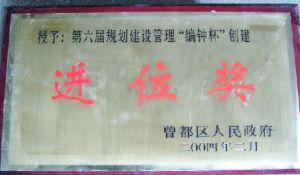 授予：第六届规划建设管理“编钟杯”创建
进位奖
曾都区人民政府
二00四年二月